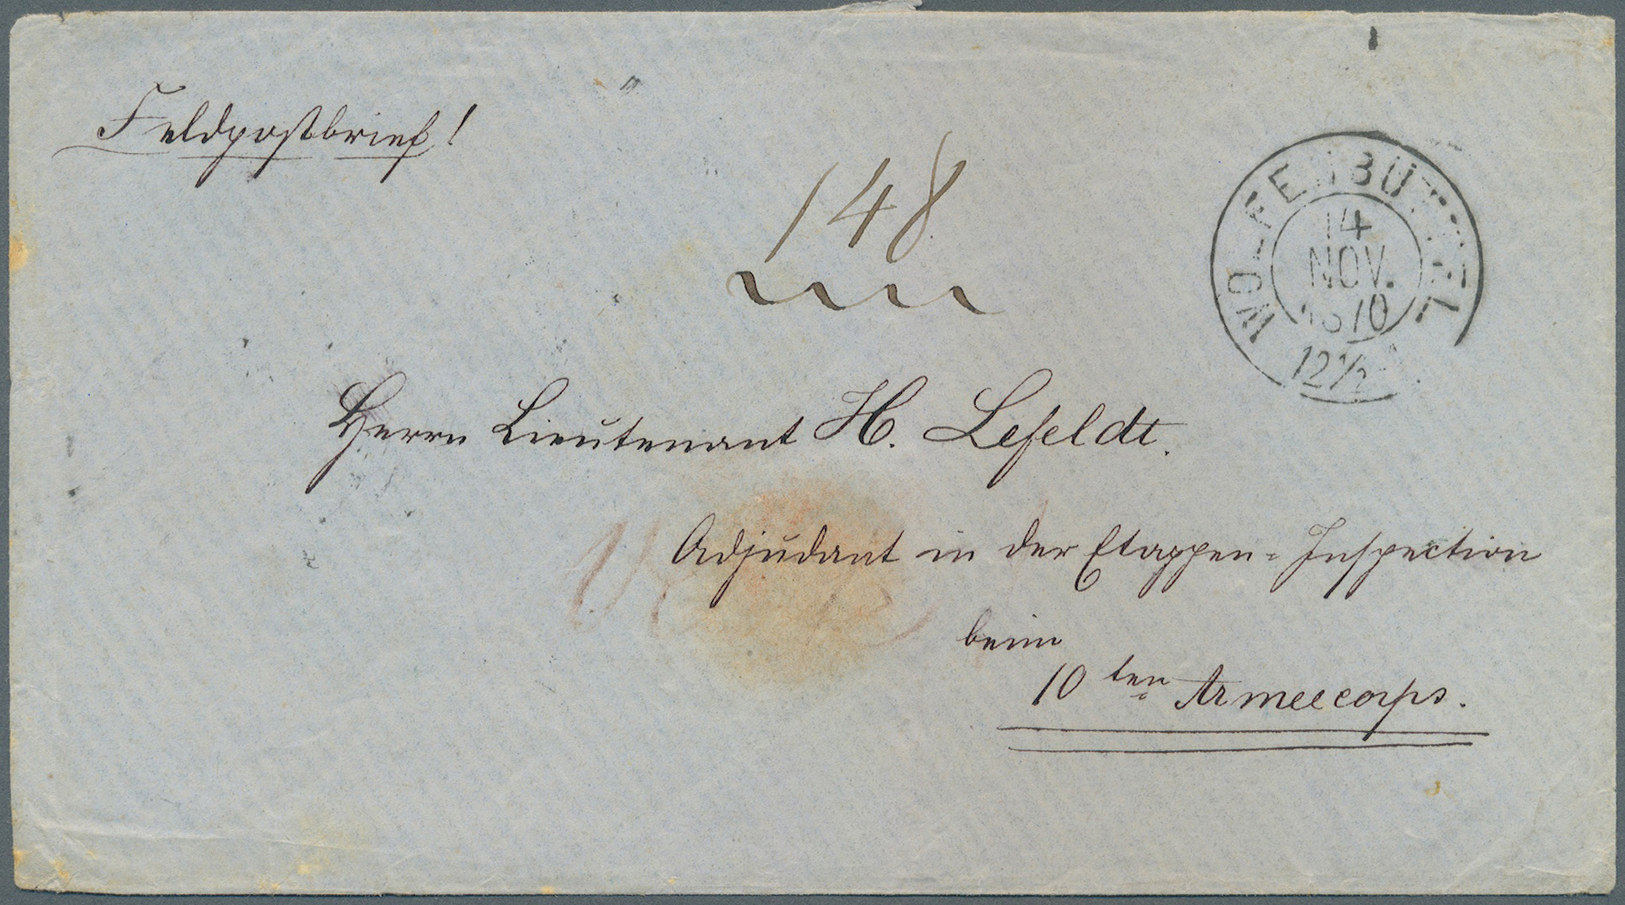 Feldpostbrief!
148
WOLFENBÜTTEL
14
NOV.
1870
12½
Herrn Lieutenant H. Lefeldt.
Adjudant in der Etappen-Inspection
beim
10ten Armeecorps.